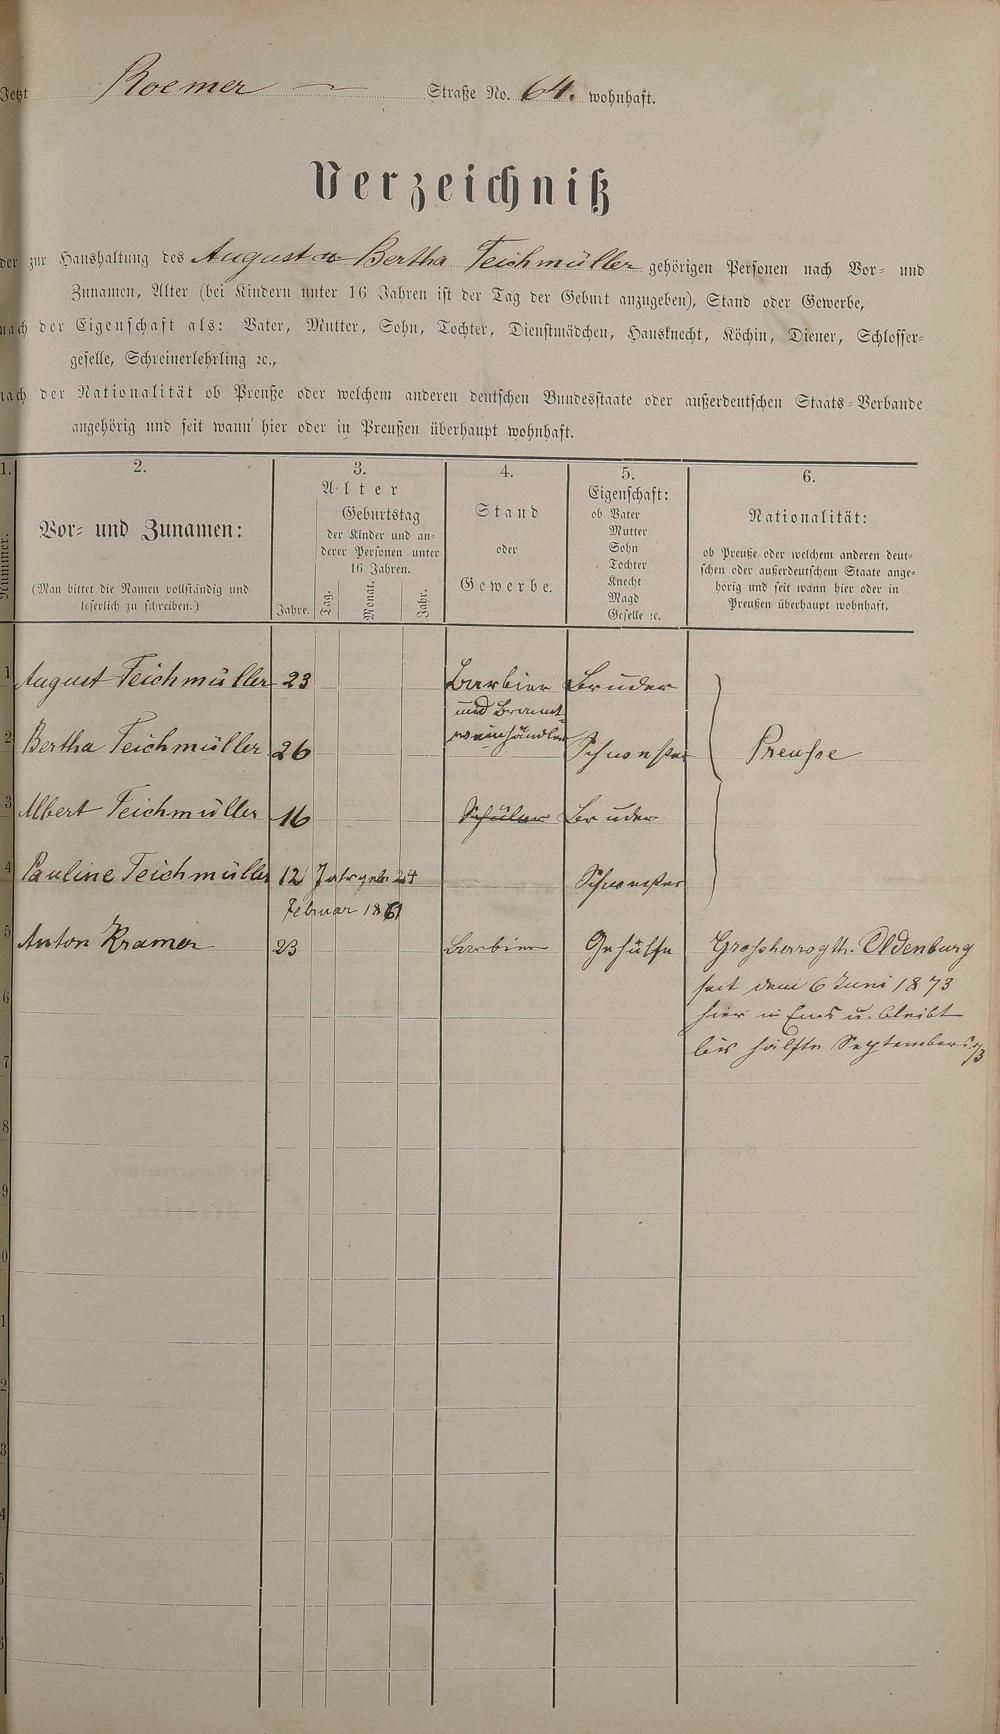 Jetzt Roemer — Straße No. 64. wohnhaft.
Verzeichniß
der zur Haushaltung des August u Bertha Teichmüller gehörigen Personen nach Vor- und
Zunamen, Alter (bei Kindern unter 16 Jahren ist der Tag der Geburt anzugeben), Stand oder Gewerbe,
nach der Eigenschaft als: Vater, Mutter, Sohn, Tochter, Dienstmädchen, Hausknecht, Köchin, Diener, Schlosser-
geselle, Schreinerlehrling ꝛc.,
nach der Nationalität ob Preuße oder welchem anderen deutschen Bundesstaate oder außerdeutschen Staats-Verbande
angehörig und seit wann hier oder in Preußen überhaupt wohnhaft.
1.
Nummer.
2.
Vor- und Zunamen:
(Man bittet die Namen vollständig und
leserlich zu schreiben.)
3.
Alter
Jahre.
Geburtstag
der Kinder und an-
derer Personen unter
16 Jahren.
Tag.
Monat.
Jahr.
4.
Stand
oder
Gewerbe.
5.
Eigenschaft:
ob Vater
Mutter
Sohn
Tochter
Knecht
Magd
Geselle ꝛc.
6.
Nationalität:
ob Preuße oder welchem anderen deut-
schen oder außerdeutschem Staate ange-
hörig und seit wann hier oder in
Preußen überhaupt wohnhaft.
1 August Teichmüller 23 Barbier Bruder
und Brannt-
weinhändler
2 Bertha Teichmüller 26 Schwester Preusse
3 Albert Teichmüller 16 Schüler Bruder
4 Pauline Teichmüller 12 Jahr geb. 24 Schwester
Februar 1861
5 Anton Kramer 23 Barbier Gehülfe Grosherzogth. Oldenburg
seit dem 6 Juni 1873
6 hier in Ems u. bleibt
7 bis hälfte Septembers
8
9
0
1
2
3
4
5
6